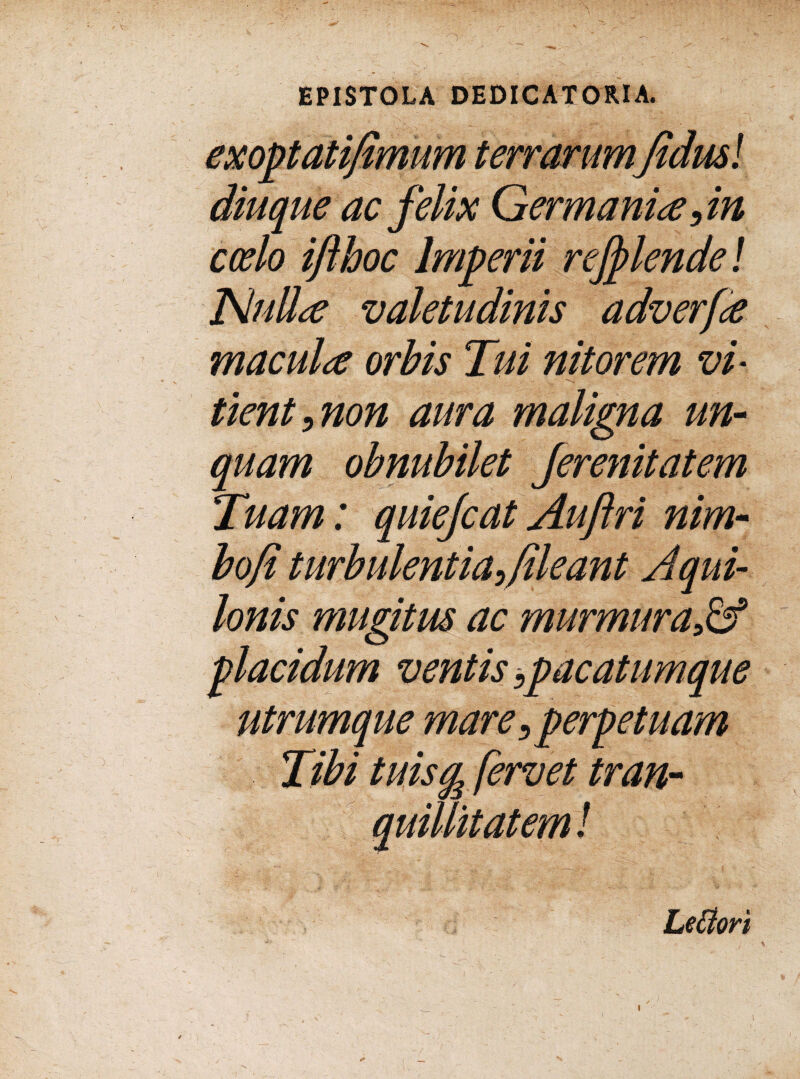 EPISTOLA DEDICATORIA.
exoptatiſimum terrarum ſidus!
diuque ac felix Germaniæ, in
cœlo iſthoc Imperii reſplende!
Nullæ valetudinis adverſæ
maculæ orbis Tui nitorem vi-
tient, non aura maligna un-
quam obnubilet ſerenitatem
Tuam: quieſcat Auſtri nim-
boſi turbulentia, ſileant Aqui-
lonis mugitus ac murmura, &
placidum ventis, pacatumque
utrumque mare, perpetuam
Tibi tuisꝗ; ſervet tran-
quillitatem!
Lectori